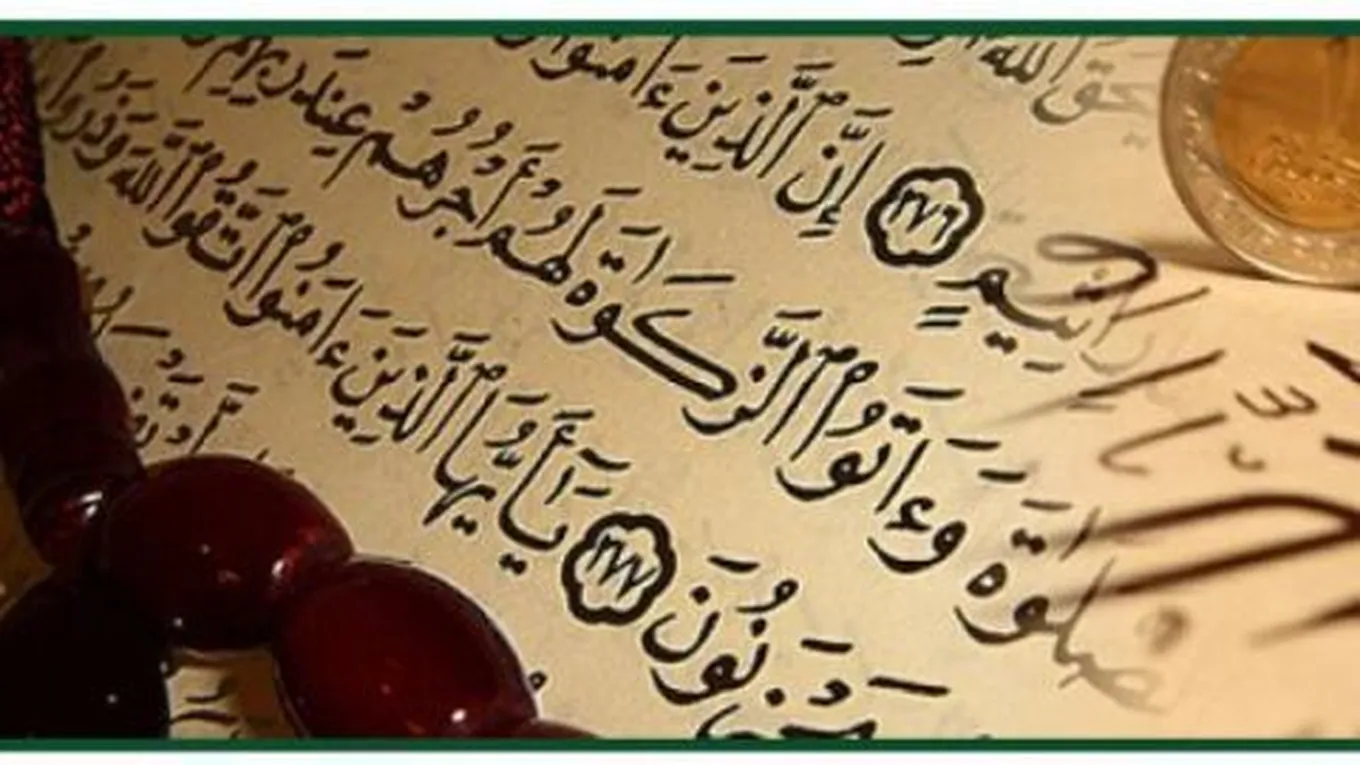 ٱللَّهُ
أَثِيمٍ ٢٧٦ إِنَّ ٱلَّذِينَ ءَامَنُوا۟
ٱلصَّلَوٰةَ وَءَاتَوُا۟ ٱلزَّكَوٰةَ لَهُمْ أَجْرُهُمْ عِندَ رَبِّهِمْ
يَحْزَنُونَ ٢٧٧ يَٰٓأَيُّهَا ٱلَّذِينَ ءَامَنُوا۟ ٱتَّقُوا۟ ٱللَّهَ وَذَرُوا۟